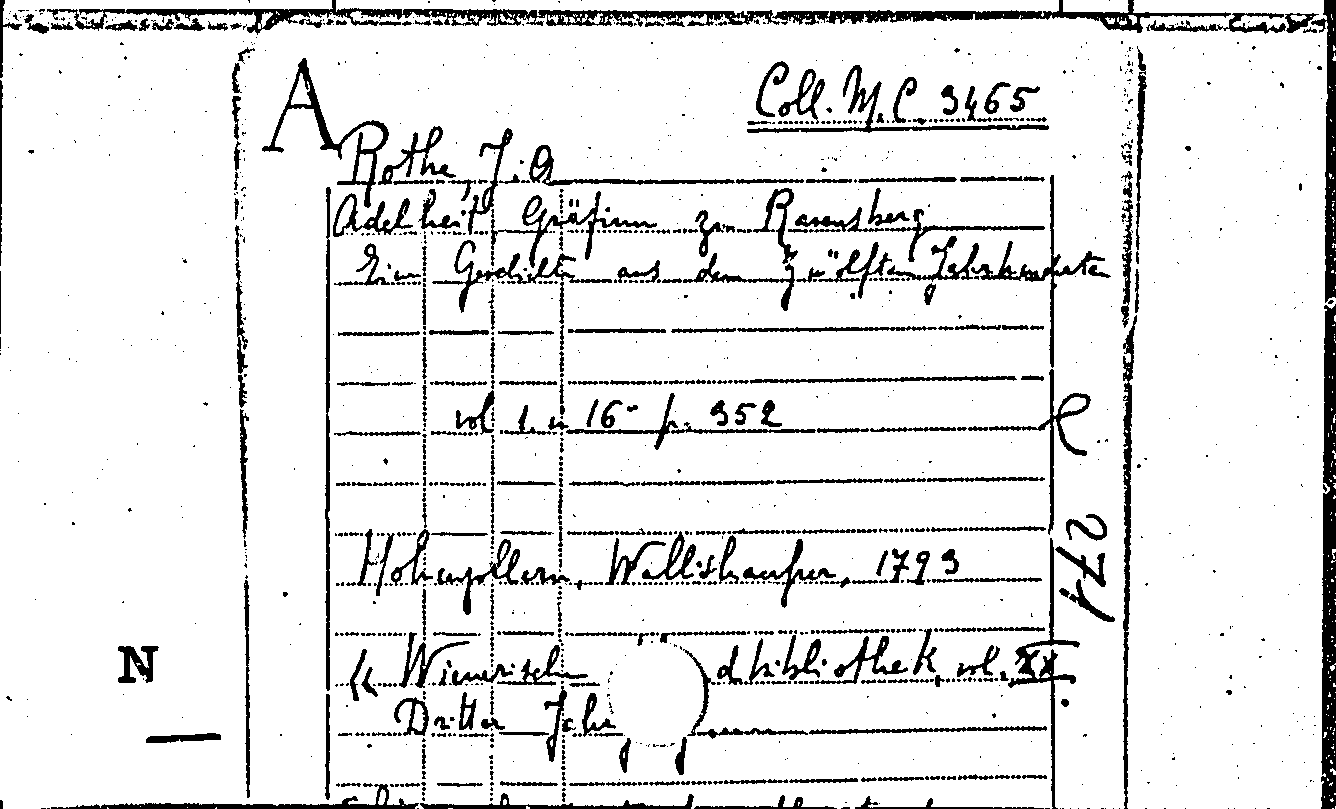 A
Coll. M.C. 3465
Rothe, J. G
Adelheit Gräfinn zu Ravensberg
Eine Geschichte aus dem Zwölften Jahrhunderte
vol 1. in 16° p. 352
R 271
Hohenzollern, Wallishausser, 1793
N
« Wienerische dbibliothek, vol. XX.
Dritter Jahr